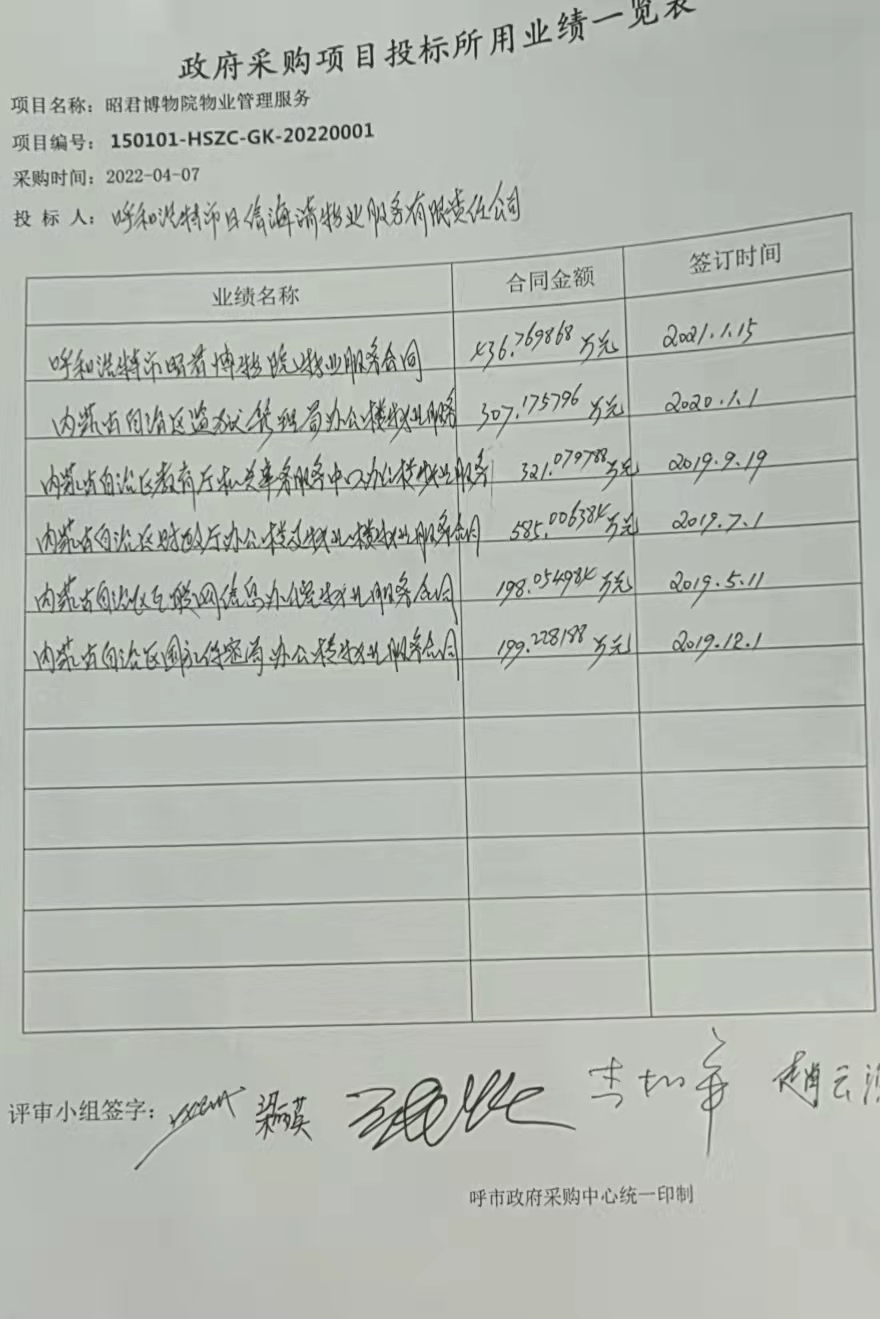 政府采购项目投标所用业绩一览表
项目名称：昭君博物院物业管理服务
项目编号：150101-HSZC-GK-20220001
采购时间：2022-04-07
投 标 人：呼和浩特市日信海清物业服务有限责任公司
业绩名称 合同金额 签订时间
呼和浩特市昭君博物院物业服务合同 436.769868万元 2021.1.15
内蒙古自治区监狱管理局办公楼物业服务 307.175796万元 2020.1.1
内蒙古自治区教育厅机关事务服务中心办公楼物业服务 321.079788万元 2019.9.19
内蒙古自治区财政厅办公楼及物业楼物业服务合同 585.006384万元 2019.7.1
内蒙古自治区互联网信息办公室物业服务合同 198.054984万元 2019.5.11
内蒙古自治区国家保密局办公楼物业服务合同 199.228188万元 2019.12.1
评审小组签字：
呼市政府采购中心统一印制